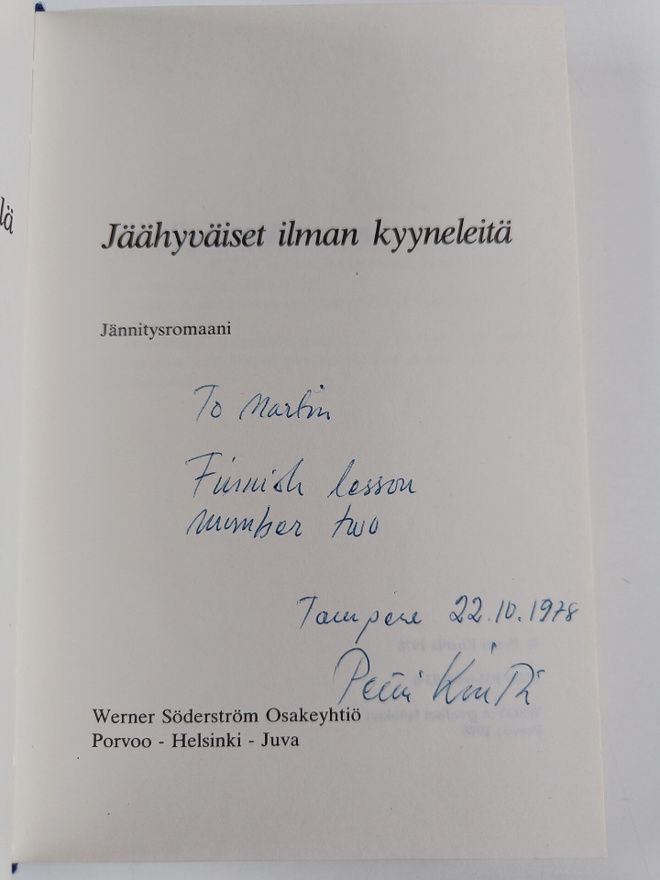 lä
Jäähyväiset ilman kyyneleitä
Jännitysromaani
To Martin
Finnish lesson
number two
Tampere 22.10.1978
Werner Söderström Osakeyhtiö
Porvoo - Helsinki - Juva